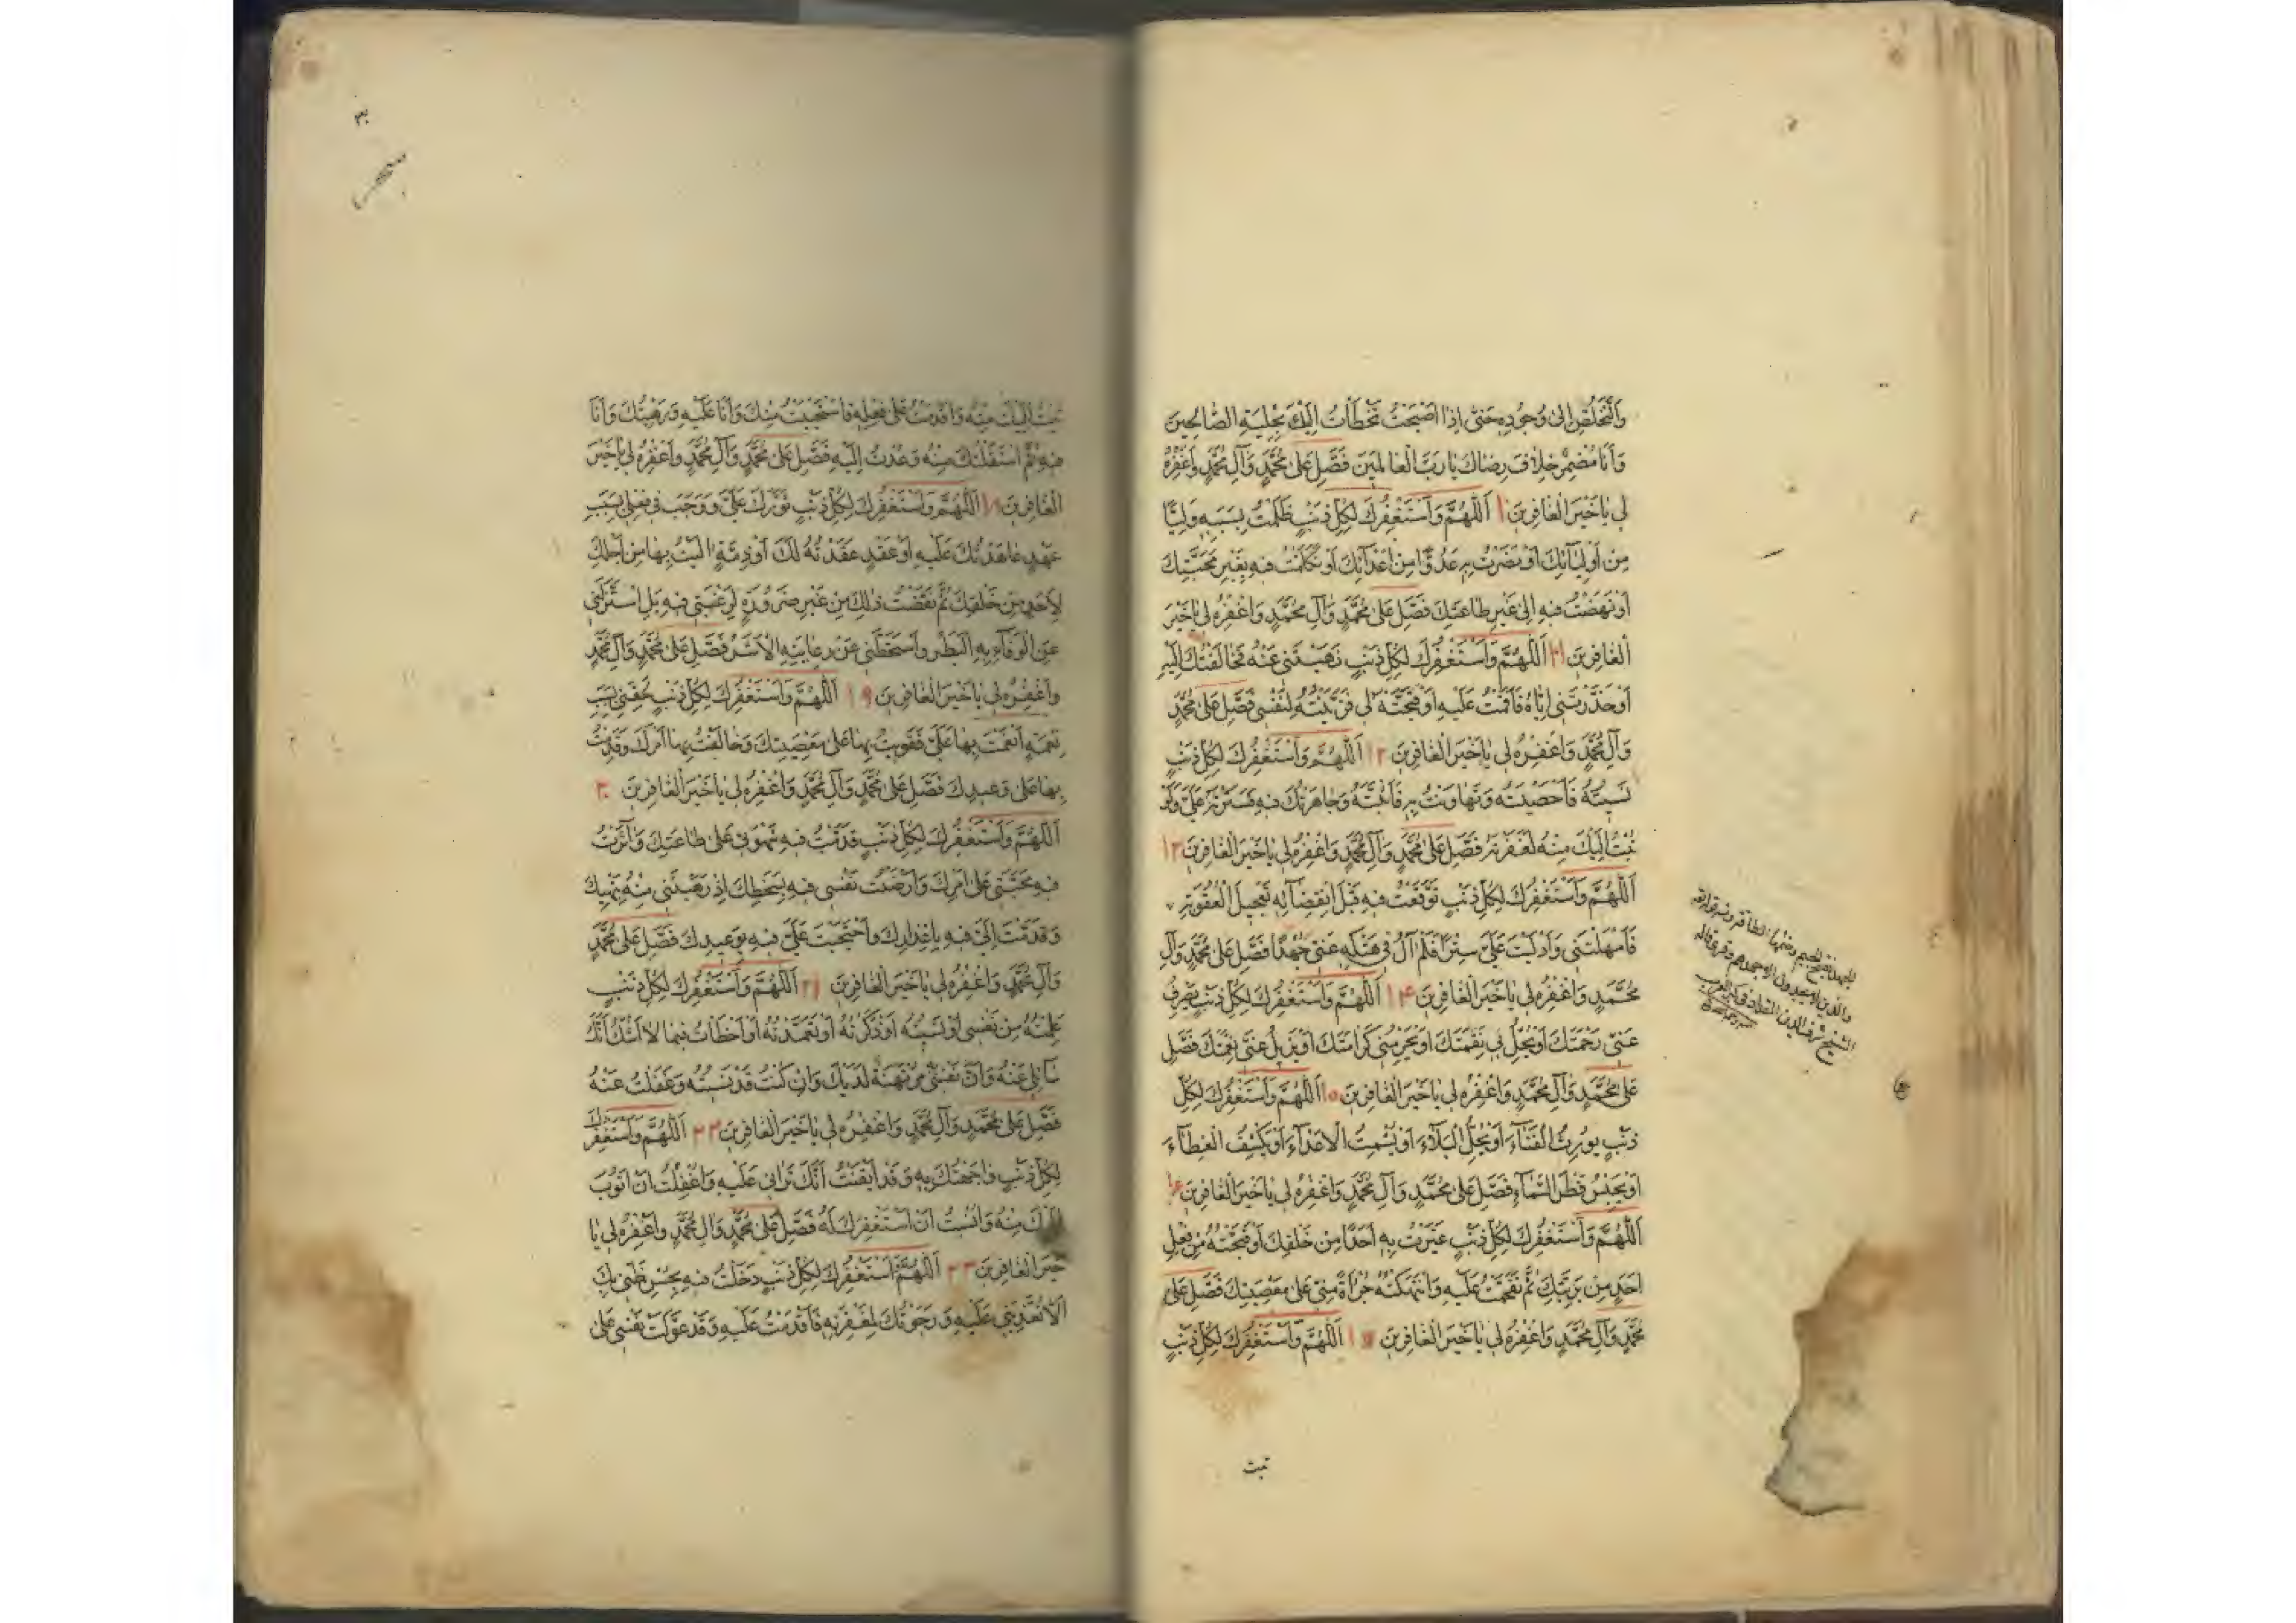 وَالتَّخَلُّصِ اِلىٰ وُجُودِهِ حَتّىٰ اِذٰا اَصْبَحْتُ تَخَطَّأْتُ اِلَيْكَ بِحِلْيَةِ الصّٰالِحينَ
وَاَنَا مُضْمِرٌ خِلاٰفَ رِضٰاكَ يٰا رَبَّ الْعٰالَمينَ فَصَلِّ عَلىٰ مُحَمَّدٍ وَآلِ مُحَمَّدٍ وَاغْفِرْهُ
لي يٰا خَيْرَ الْغٰافِرينَ ١٠ اَللّٰهُمَّ وَاَسْتَغْفِرُكَ لِكُلِّ ذَنْبٍ ظَلَمْتُ بِسَبَبِهِ وَلِيًّا
مِنْ اَوْلِيٰآئِكَ اَوْ نَصَرْتُ بِهِ عَدُوًّا مِنْ اَعْدٰآئِكَ اَوْ تَكَلَّمْتُ فيهِ بِغَيْرِ مَحَبَّتِكَ
اَوْ نَهَضْتُ فيهِ اِلىٰ غَيْرِ طٰاعَتِكَ فَصَلِّ عَلىٰ مُحَمَّدٍ وَآلِ مُحَمَّدٍ وَاغْفِرْهُ لي يٰا خَيْرَ
الْغٰافِرينَ ١١ اَللّٰهُمَّ وَاَسْتَغْفِرُكَ لِكُلِّ ذَنْبٍ نَهَيْتَني عَنْهُ فَخٰالَفْتُكَ اِلَيْهِ
اَوْ حَذَّرْتَني اِيّٰاهُ فَاَقَمْتُ عَلَيْهِ اَوْ قَبَّحْتَهُ لي فَزَيَّنْتُهُ لِنَفْسي فَصَلِّ عَلىٰ مُحَمَّدٍ
وَآلِ مُحَمَّدٍ وَاغْفِرْهُ لي يٰا خَيْرَ الْغٰافِرينَ ١٢ اَللّٰهُمَّ وَاَسْتَغْفِرُكَ لِكُلِّ ذَنْبٍ
نَسيتُهُ فَاَحْصَيْتَهُ وَتَهٰاوَنْتُ بِهِ فَاَثْبَتَّهُ وَجٰاهَرْتُكَ فيهِ فَسَتَرْتَهُ عَلَيَّ وَلَوْ
تُبْتُ اِلَيْكَ مِنْهُ لَغَفَرْتَهُ فَصَلِّ عَلىٰ مُحَمَّدٍ وَآلِ مُحَمَّدٍ وَاغْفِرْهُ لي يٰا خَيْرَ الْغٰافِرينَ ١٣
اَللّٰهُمَّ وَاَسْتَغْفِرُكَ لِكُلِّ ذَنْبٍ تَوَقَّعْتُ فيهِ قَبْلَ انْقِضٰآئِهِ تَعْجيلَ الْعُقُوبَةِ
فَاَمْهَلْتَني وَاَدْلَيْتَ عَلَيَّ سِتْرًا فَلَمْ آلُ في هَتْكِهِ عَنّي جُهْدًا فَصَلِّ عَلىٰ مُحَمَّدٍ وَآلِ
مُحَمَّدٍ وَاغْفِرْهُ لي يٰا خَيْرَ الْغٰافِرينَ ١٤ اَللّٰهُمَّ وَاَسْتَغْفِرُكَ لِكُلِّ ذَنْبٍ يَصْرِفُ
عَنّي رَحْمَتَكَ اَوْ يُحِلُّ بي نِقْمَتَكَ اَوْ يَحْرِمُني كَرٰامَتَكَ اَوْ يُزيلُ عَنّي نِعْمَتَكَ فَصَلِّ
عَلىٰ مُحَمَّدٍ وَآلِ مُحَمَّدٍ وَاغْفِرْهُ لي يٰا خَيْرَ الْغٰافِرينَ ١٥ اَللّٰهُمَّ وَاَسْتَغْفِرُكَ لِكُلِّ
ذَنْبٍ يُورِثُ الْفَنٰآءَ اَوْ يُحِلُّ الْبَلاٰءَ اَوْ يُشْمِتُ الْاَعْدٰآءَ اَوْ يَكْشِفُ الْغِطٰآءَ
اَوْ يَحْبِسُ قَطْرَ السَّمٰآءِ فَصَلِّ عَلىٰ مُحَمَّدٍ وَآلِ مُحَمَّدٍ وَاغْفِرْهُ لي يٰا خَيْرَ الْغٰافِرينَ ١٦
اَللّٰهُمَّ وَاَسْتَغْفِرُكَ لِكُلِّ ذَنْبٍ عَيَّرْتُ بِهِ اَحَدًا مِنْ خَلْقِكَ اَوْ قَبَّحْتُهُ مِنْ فِعْلِ
اَحَدٍ مِنْ بَرِيَّتِكَ ثُمَّ تَقَحَّمْتُ عَلَيْهِ وَانْتَهَكْتُهُ جُرْاَةً مِنّي عَلىٰ مَعْصِيَتِكَ فَصَلِّ عَلىٰ
مُحَمَّدٍ وَآلِ مُحَمَّدٍ وَاغْفِرْهُ لي يٰا خَيْرَ الْغٰافِرينَ ١٧ اَللّٰهُمَّ وَاَسْتَغْفِرُكَ لِكُلِّ ذَنْبٍ
تبت
٣٠
تُبْتُ اِلَيْكَ مِنْهُ وَاَقْدَمْتُ عَلىٰ فِعْلِهِ فَاسْتَحْيَيْتُ مِنْكَ وَاَنَا عَلَيْهِ وَرَهِبْتُكَ وَاَنَا
فيهِ ثُمَّ اسْتَقَلْتُكَ مِنْهُ وَعُدْتُ اِلَيْهِ فَصَلِّ عَلىٰ مُحَمَّدٍ وَآلِ مُحَمَّدٍ وَاغْفِرْهُ لي يٰا خَيْرَ
الْغٰافِرينَ ١٨ اَللّٰهُمَّ وَاَسْتَغْفِرُكَ لِكُلِّ ذَنْبٍ تَوَرَّكَ عَلَيَّ وَوَجَبَ في فِعْلي بِسَبَبِ
عَهْدٍ عٰاهَدْتُكَ عَلَيْهِ اَوْ عَقْدٍ عَقَدْتُهُ لَكَ اَوْ ذِمَّةٍ اٰلَيْتُ بِهٰا مِنْ اَجْلِكَ
لِاَحَدٍ مِنْ خَلْقِكَ ثُمَّ نَقَضْتُ ذٰلِكَ مِنْ غَيْرِ ضَرُورَةٍ لِرَغْبَتي فيهِ بَلِ اسْتَزَلَّني
عَنِ الْوَفٰآءِ بِهِ الْبَطَرُ وَاَسْخَطَني عَنْ رِعٰايَتِهِ الْاَشَرُ فَصَلِّ عَلىٰ مُحَمَّدٍ وَآلِ مُحَمَّدٍ
وَاغْفِرْهُ لي يٰا خَيْرَ الْغٰافِرينَ ١٩ اَللّٰهُمَّ وَاَسْتَغْفِرُكَ لِكُلِّ ذَنْبٍ لَحِقَني بِسَبَبِ
نِعْمَةٍ اَنْعَمْتَ بِهٰا عَلَيَّ فَقَوِيتُ بِهٰا عَلىٰ مَعْصِيَتِكَ وَخٰالَفْتُ بِهٰا اَمْرَكَ وَقَدِمْتُ
بِهٰا عَلىٰ وَعيدِكَ فَصَلِّ عَلىٰ مُحَمَّدٍ وَآلِ مُحَمَّدٍ وَاغْفِرْهُ لي يٰا خَيْرَ الْغٰافِرينَ ٢٠
اَللّٰهُمَّ وَاَسْتَغْفِرُكَ لِكُلِّ ذَنْبٍ قَدَّمْتُ فيهِ شَهْوَتي عَلىٰ طٰاعَتِكَ وَآثَرْتُ
فيهِ مَحَبَّتي عَلىٰ اَمْرِكَ وَاَرْضَيْتُ نَفْسي فيهِ بِسَخَطِكَ اِذْ رَهَّبْتَني مِنْهُ بِنَهْيِكَ
وَقَدَّمْتَ اِلَيَّ فيهِ بِاِعْذٰارِكَ وَاحْتَجَجْتَ عَلَيَّ فيهِ بِوَعيدِكَ فَصَلِّ عَلىٰ مُحَمَّدٍ
وَآلِ مُحَمَّدٍ وَاغْفِرْهُ لي يٰا خَيْرَ الْغٰافِرينَ ٢١ اَللّٰهُمَّ وَاَسْتَغْفِرُكَ لِكُلِّ ذَنْبٍ
عَلِمْتُهُ مِنْ نَفْسي اَوْ نَسيتُهُ اَوْ ذَكَرْتُهُ اَوْ تَعَمَّدْتُهُ اَوْ اَخْطَأْتُ فيمٰا لاٰ اَشُكُّ اَنَّكَ
سٰآئِلي عَنْهُ وَاَنَّ نَفْسي مُرْتَهَنَةٌ لَدَيْكَ وَاِنْ كُنْتُ قَدْ نَسيتُهُ وَغَفَلْتُ عَنْهُ
فَصَلِّ عَلىٰ مُحَمَّدٍ وَآلِ مُحَمَّدٍ وَاغْفِرْهُ لي يٰا خَيْرَ الْغٰافِرينَ ٢٢ اَللّٰهُمَّ وَاَسْتَغْفِرُكَ
لِكُلِّ ذَنْبٍ وٰاجَهْتُكَ بِهِ وَقَدْ اَيْقَنْتُ اَنَّكَ تَرٰاني عَلَيْهِ وَاُغْفِلْتُ اَنْ اَتُوبَ
اِلَيْكَ مِنْهُ وَاُنْسيتُ اَنْ اَسْتَغْفِرَكَ لَهُ فَصَلِّ عَلىٰ مُحَمَّدٍ وَآلِ مُحَمَّدٍ وَاغْفِرْهُ لي يٰا
خَيْرَ الْغٰافِرينَ ٢٣ اَللّٰهُمَّ اَسْتَغْفِرُكَ لِكُلِّ ذَنْبٍ دَخَلْتُ فيهِ بِحُسْنِ ظَنّي بِكَ
اَلاّٰ تُعَذِّبَني عَلَيْهِ وَرَجَوْتُكَ لِمَغْفِرَتِهِ فَاَقْدَمْتُ عَلَيْهِ وَقَدْ عَوَّلَتْ نَفْسي عَلىٰ